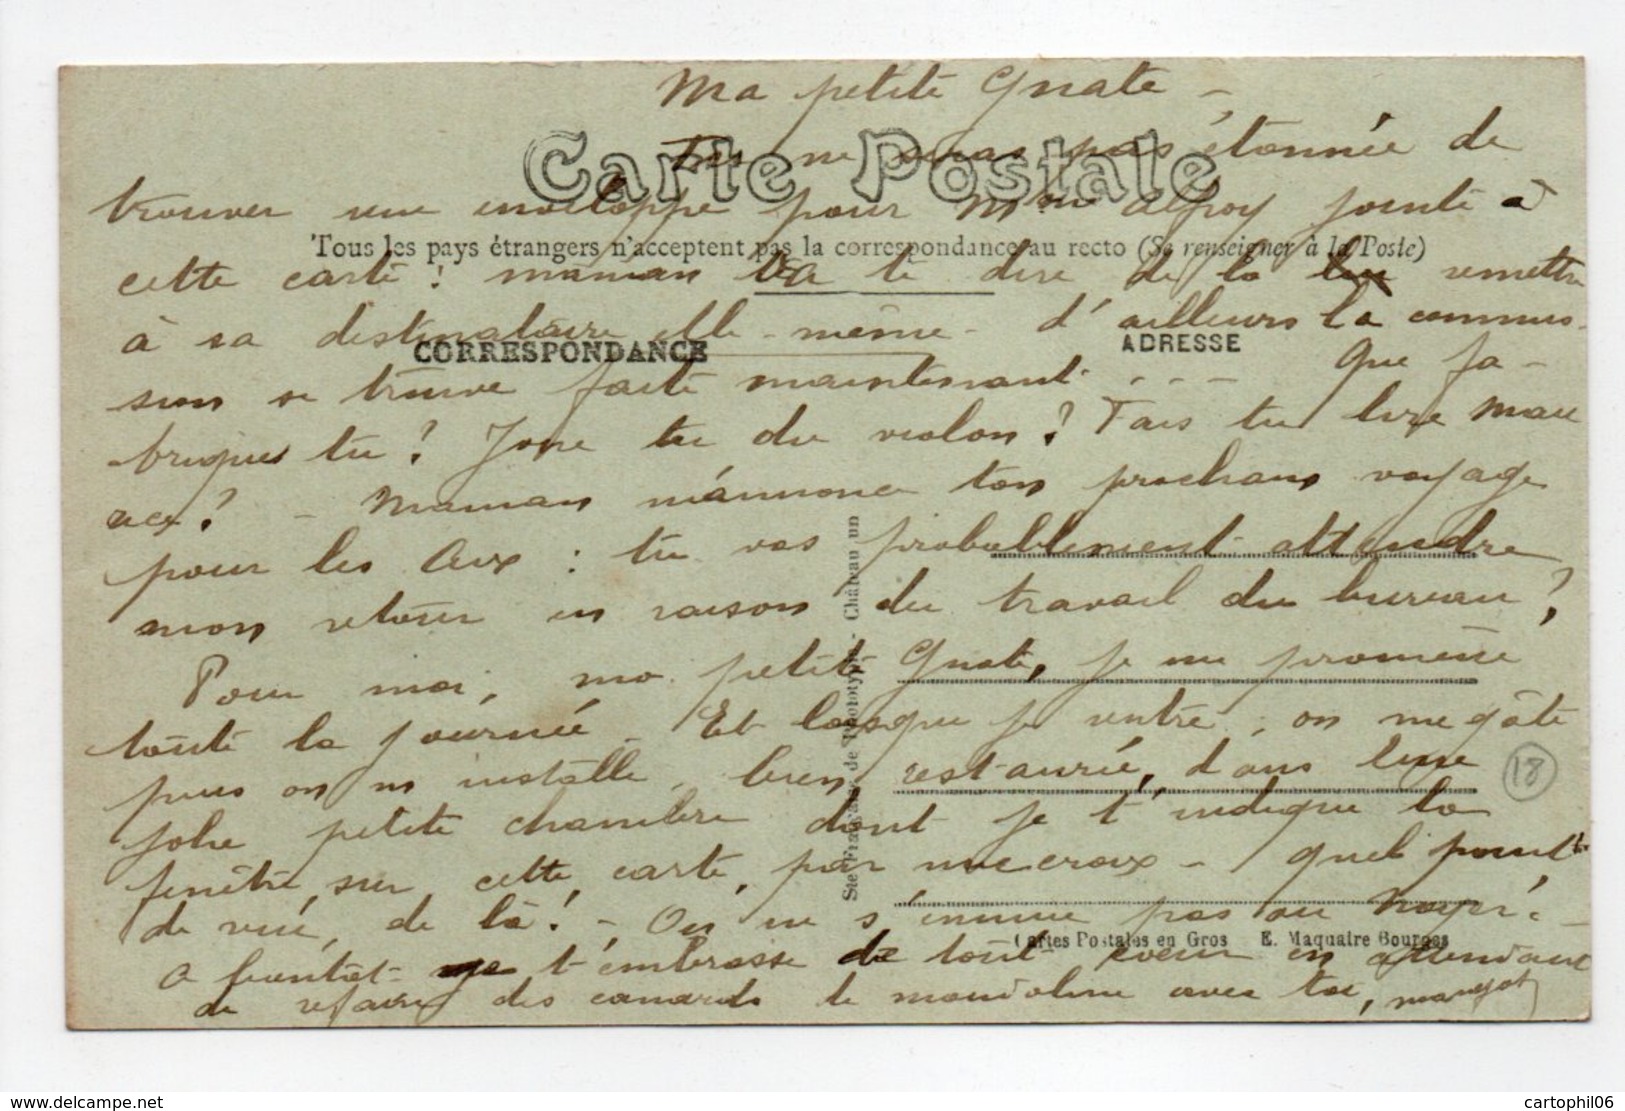 Ma petite Gnate –
Carte Postale
Tu ne seras pas étonnée de
trouver une enveloppe pour Mme jointe à
Tous les pays étrangers n'acceptent pas la correspondance au recto (Se renseigner à la Poste)
cette carte ! maman va te dire de la remettre
à sa destinataire elle-même – d'ailleurs la commis-
CORRESPONDANCE
ADRESSE
sion se trouve faite maintenant . . . – Que fa-
briques tu ? Joue tu du violon ? Fais tu lire Mau
rice ? – Maman m'annonce ton prochain voyage
pour les Aix : tu vas probablement attendre
mon retour en raison du travail du bureau ?
Pour moi, ma petite Gnate, je me promène
toute la journée – Et lorsque je rentre, on me gâte
puis on m'installe, bien restaurée, dans une
18
jolie petite chambre dont je t'indique la
fenêtre, sur cette carte, par une croix – quel point
de vue, de là ! – On ne s'ennuie pas au
A bientôt – je t'embrasse de tout coeur en attendant
de refaire des canards de mandoline avec toi, Margot
Sté Française de Phototypie - Château un
Cartes Postales en Gros E. Maquaire Bourges
https://www.delcampe.net
cartophil06